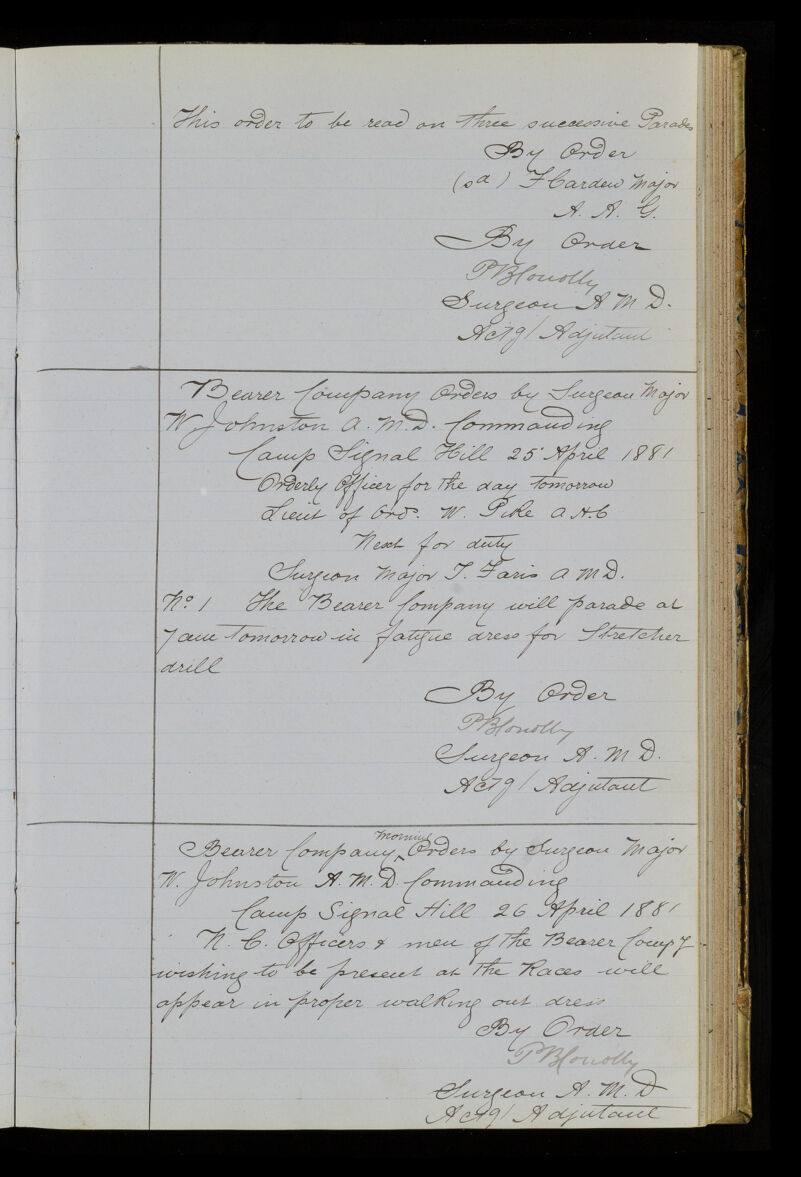 This order to be read on three successive Parades
By Order
(sd) F Carden Major
A. A. G.
By Order
P B Conolly
Surgeon A M D.
Actg/ Adjutant
Bearer Company Orders by Surgeon Major
W Johnston A. M. D. Commanding
Camp Signal Hill 25 April 1881
Orderly Officer for the day tomorrow
Lieut of Ords. W. Pike A H C
Next for duty
Surgeon Major T. Faris A M D.
No. 1 The Bearer Company will parade at
7 am tomorrow in fatigue dress for Stretcher
drill
By Order
P B Conolly
Surgeon A. M D.
Actg/ Adjutant
Bearer Company Morning Orders by Surgeon Major
W. Johnston A. M. D. Commanding
Camp Signal Hill 26 April 1881
N. C. Officers & men of the Bearer Compy
wishing to be present at the Races will
appear in proper walking out dress
By Order
P B Conolly
Surgeon A. M. D
Actg/ Adjutant